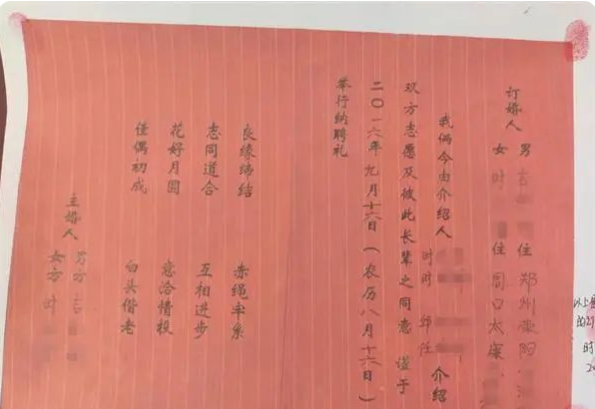 订婚人
男 吉 住 郑州荥阳
女 时 住 周口太康
我俩今由介绍人 时 时 邱 任 介绍
双方志愿及彼此长辈之同意 谨于
二〇一六年九月十六日（农历八月十六日）
举行纳聘礼
良缘缔结 赤绳牵系
志同道合 互相进步
花好月圆 意洽情投
佳偶初成 白头偕老
主婚人
男方 吉
女方 时
以上
时